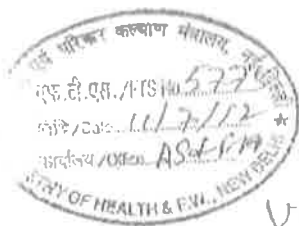 एवं परिवार कल्याण मंत्रालय, नई दिल्ली
एफ.टी.एस./FTS No. 577
तिथि/Date 11/7/12
कार्यालय/Office AS&FA
MINISTRY OF HEALTH & F.W., NEW DELHI